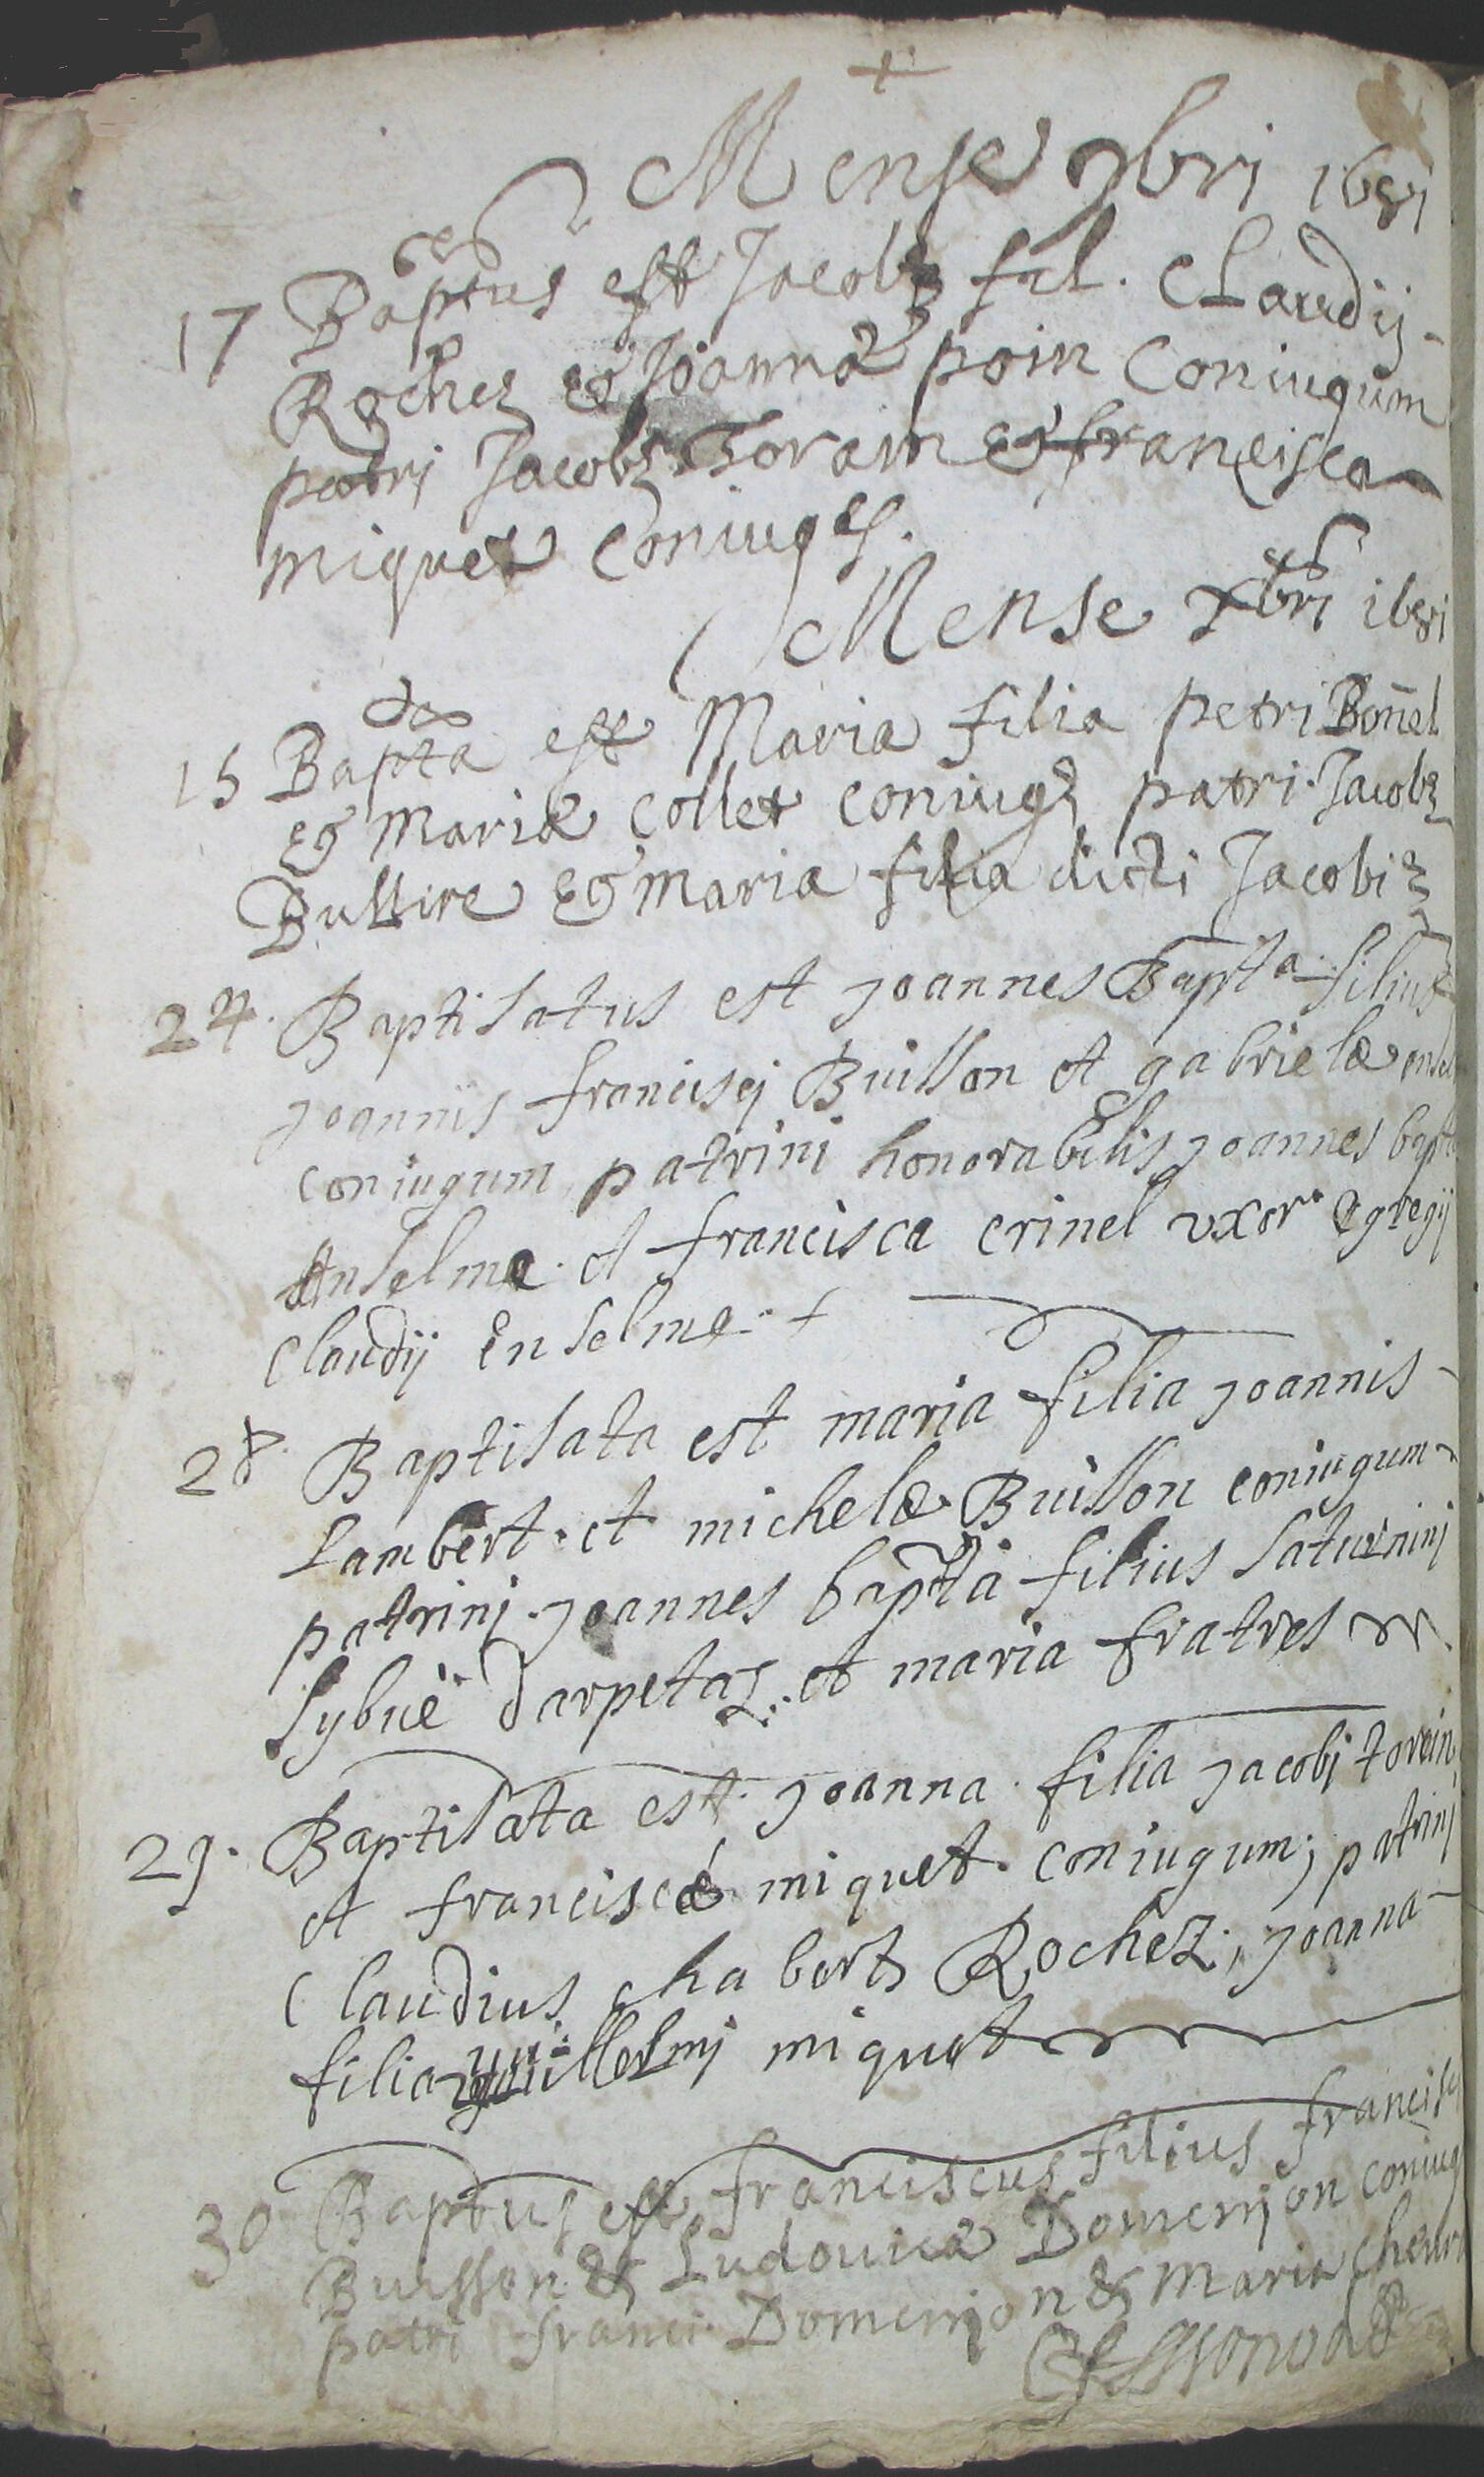 +
Mense 9bri 1681
17 Baptus est Jacobz fil. Claudij
Rochez et Joannæ poin Coniugum
patri Jacobz Torain et francisca
miquet Coniuges.
Mense Xbri 1681
15 Bapta est Maria filia petri Boñel
et Mariæ Collet coniugz patri. Jacobz
Bullire et Maria filia dicti Jacobi
24. Baptisatus est joannes Bapta filius
joannis francisci Buisson et gabrielæ
coniugum patrini honorabilis joannes bapta
Anselme. et francisca crinel uxor egregij
Claudij enselme. +
28. Baptisata est maria filia joannis
Lambert. et michelæ Buisson coniugum
patrinj. joannes bapta filius saturninj
sybuè darpetaz. et maria fratres
29. Baptisata est joanna filia jacobj torain
et franciscæ miquet. coniugum; patrinj
Claudius chabert Rochez; joanna
filia guillelmj miquet
30 Baptus est franciscus filius francisci
Buisson & Ludovicæ Domenjon coniug
patri franci. Domenjon & Maria